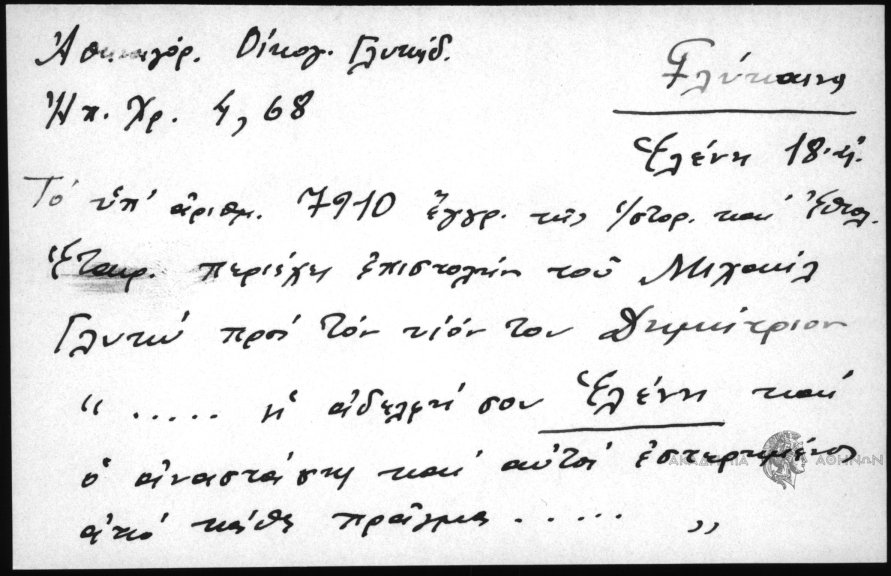 Ἀθηναγόρ. Οἰκογ. Γλυκήδ.
Ἠπ. Χρ. 4, 68
Γλύκαινα
Ἑλένη 18.
Τό ὑπ' ἀριθμ. 7910 ἔγγρ. τῆς Ἱστορ. καί Ἐθνολ.
Ἑταιρ. περιέχει ἐπιστολήν τοῦ Μιχαήλ
Γλυκύ πρός τόν υἱόν του Δημήτριον
“ ..... ἡ ἀδελφή σου Ἑλένη καί
ὁ ἀναστάσης καί αὐτοί ἐστερημένοι
ἀπό κάθε πρᾶγμα ..... ”
ΑΚΑΔΗΜΙΑ ΑΘΗΝΩΝ